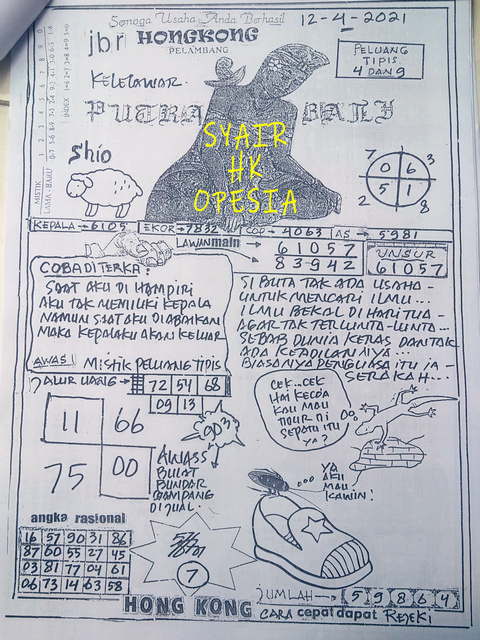 Semoga Usaha Anda Berhasil
12-4-2021
jbr HONGKONG
PELAMBANG
PELUANG
TIPIS
4 DAN 9
KELELAWAR
PUTRA BALI
SYAIR
HK
OPESIA
Shio
7 3
0 6
5 1
2 8
MISTIK
LAMA - BARU
INDEX
KEPALA → 6105
EKOR → 7832
COP → 4063
AS → 5981
LAWANmain →
61057
83942
UNSUR
61057
COBA DITERKA:
SAAT AKU DI HAMPIRI
AKU TAK MEMILIKI KEPALA
NAMUN SAAT AKU DI ABAIKAN
MAKA KEPALAKU AKAN KELUAR
AWAS! MISTIK PELUANG TIPIS
SI BUTA TAK ADA USAHA-
UNTUK MENCARI ILMU...
ILMU BEKAL DI HARI TUA-
AGAR TAK TERLUNTA-LUNTA...
SEBAB DUNIA KERAS DAN TAK
ADA KEADILANNYA...
BIASANYA PENGUASA ITU IA-
SERAKAH...
JALUR UANG → 72 54 68
09 13
11 66
75 00
AWASS
BULAT
BUNDAR
GAMPANG
DI JUAL.
CEK...CEK
HAI KECOA
KAU MAU
TIDUR DI
SEPATU ITU
YA?
YA
AKU
MAU
KAWIN!
angka rasional
16 57 90 31 86
87 00 55 27 45
03 81 77 04 61
06 73 14 63 58
7
JUMLAH → 5 9 8 6 4
HONG KONG CARA cepat dapat REJEKI